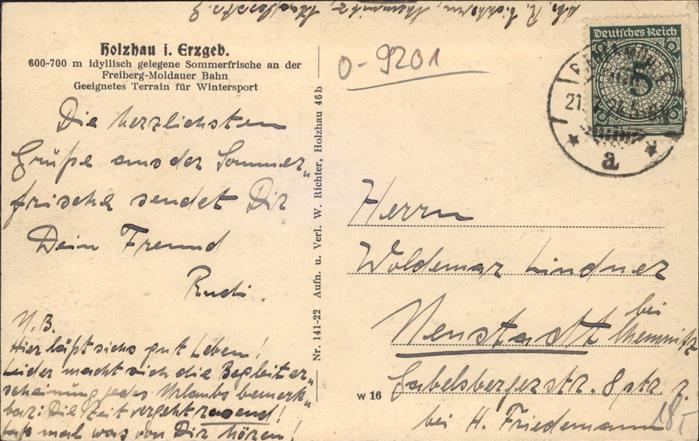 Holzhau i. Erzgeb.
600-700 m idyllisch gelegene Sommerfrische an der
Freiberg-Moldauer Bahn
Geeignetes Terrain für Wintersport
Die herzlichsten
Grüße aus der Sommer„
frische sendet Dir
Dein Freund
Rudi.
N.B.
Hier läßt sichs gut Leben!
Leider macht sich die Begleiter„
scheinung jedes Urlaubs bemerk„
bar: Die Zeit vergeht rasend!
Laß mal was von Dir hören!
Nr. 141-22 Aufn. u. Verl. W. Richter, Holzhau 46 b
0-9201
Deutsches Reich
5
21.
a
Herrn
Woldemar Lindner
Neustadt bei
Chemnitz
Gabelsbergerstr. 8, ptr.
bei H. Friedemann
w 16
18,-